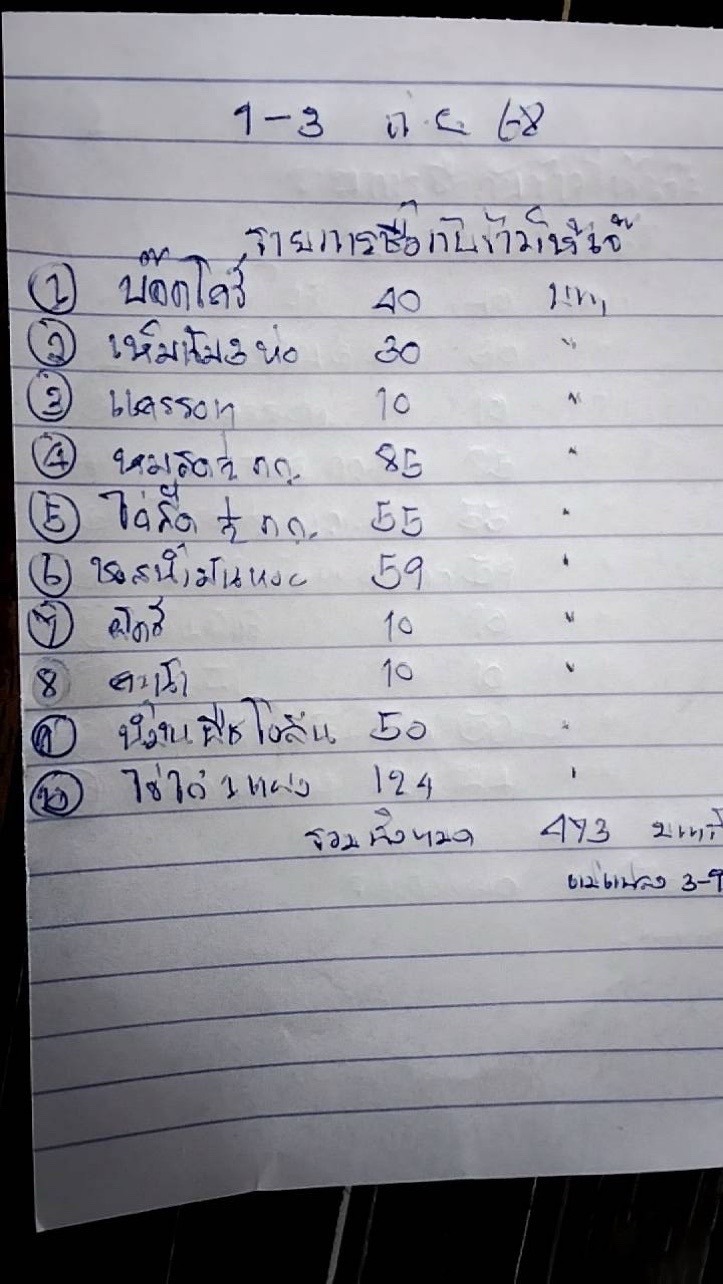 1-3 ก.ย. 68
รายการซื้อกับข้าวให้เจ๊
1 บ๊อคโครี่ 40 บาท
2 เห็ม 3 ห่อ 30 "
3 แครรอท 10 "
4 หมูสด ½ กก. 85 "
5 ไก่สด ½ กก. 55 "
6 ซอสน้ำมันหอย 59 "
7 ผักชี 10 "
8 คะน้า 10 "
9 น้ำมันพืชโอลีน 50 "
10 ไข่ไก่ 1 แผง 124 "
รวมทั้งหมด 473 บาท
3-9